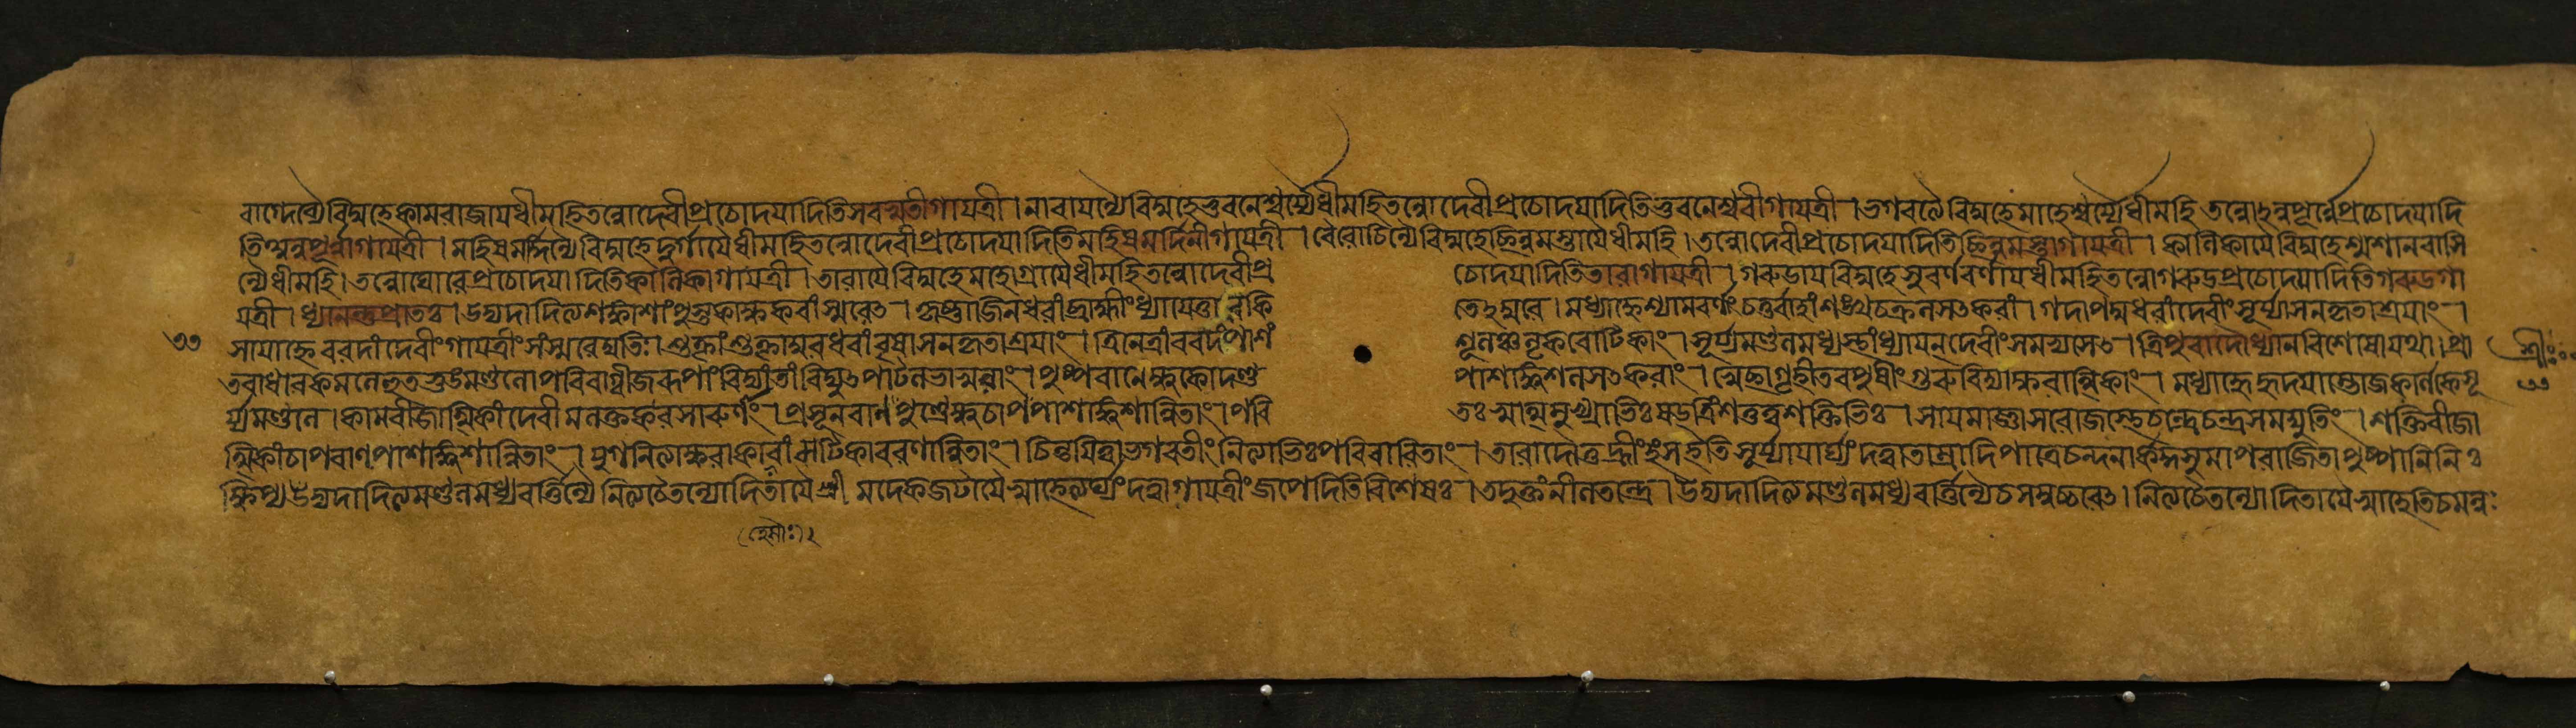 বাগ্দেব্যৈবিদ্মহেকামরাজায়ধীমহিতন্নোদেবীপ্রচোদয়াদিতিসরস্বতীগায়ত্রী । নারায়ণ্যৈবিদ্মহেভুবনেশ্বর্য্যৈধীমহিতন্নোদেবীপ্রচোদয়াদিতিভুবনেশ্বরীগায়ত্রী । ভগবত্যৈবিদ্মহেমাহেশ্বর্য্যৈধীমহি তন্নোঽন্নপূর্ণ্ণেপ্রচোদয়াদি
তিঅন্নপূর্ণ্ণাগায়ত্রী । মহিষমর্দ্দিন্যৈবিদ্মহেদুর্গায়ৈধীমহিতন্নোদেবীপ্রচোদয়াদিতিমহিষমর্দিনীগায়ত্রী । বৈরোচিন্যৈবিদ্মহেছিন্নমস্তায়ৈধীমহি । তন্নোদেবীপ্রচোদয়াদিতিছিন্নমস্তাগায়ত্রী । কালিকায়ৈবিদ্মহেশ্মশানবাসি
ন্যৈধীমহি । তন্নোঘোরেপ্রচোদয়াদিতিকালিকাগায়ত্রী । তারায়ৈবিদ্মহেমহোগ্রায়ৈধীমহিতন্নোদেবীপ্র চোদয়াদিতিতারাগায়ত্রী । গরুডায়বিদ্মহেসুবর্ণবর্ণায়ধীমহিতন্নোগরুডপ্রচোদয়াদিতিগরুডগা
য়ত্রী । ধ্যানন্তুপ্রাতঃ । উদ্যদাদিত্যশঙ্কাশাংপুস্তকাক্ষকরাংস্মরেৎ । কৃষ্ণাজিনধরাংব্রাহ্মীংধ্যায়েত্তারকি তেঽম্বরে । মধ্যাহ্নেশ্যামবর্ণাংচতুর্বাহাংশঙ্খচক্রলসৎকরাং । গদাপদ্মধরাংদেবীংসূর্য্যাসনকৃতাশ্রয়াং ।
৩৩ সায়াহ্নেবরদাংদেবীংগায়ত্রীংসংস্মরেদ্যতিঃ । শুক্লাংশুক্লাম্বরধরাংবৃষাসনকৃতাশ্রয়াং । ত্রিনেত্রাংবরদাংপাশং শূলঞ্চনৃকরোটিকাং । সূর্য্যমণ্ডলমধ্যস্থাংধ্যায়ন্দেবীংসমভ্যসেৎ । ত্রিপুরাদৌধ্যানবিশেষোযথা । প্রা শ্রীঃ
তরাধারকমলেহুতভুঙ্মণ্ডলোপরিবাগ্বীজরূপাংবিদ্যাংতাংবিদ্যুৎপাটলভাস্বরাং । পুষ্পবানেক্ষুকোদণ্ড পাশাঙ্কুশলসৎকরাং । স্বেচ্ছাগৃহীতবপুষীংগুরুবিদ্যাক্ষরাত্মিকাং । মধ্যাহ্নেহৃদয়াম্ভোজকর্ণিকেসূ ৩৩
র্য্যমণ্ডলে । কামবীজাত্মিকাংদেবীমলক্তকরসারুণাং । প্রসূনবানপুণ্ড্রেক্ষুচাপপাশাঙ্কুশান্বিতাং । পরি তঃস্বাত্মমুখ্যাভিঃষড্ত্রিংশত্তত্ত্বশক্তিভিঃ । সায়মাজ্ঞাসরোজস্থেচন্দ্রেচন্দ্রসমদ্যুতিং । শক্তিবীজা
ত্মিকাংচাপবাণপাশাঙ্কুশান্বিতাং । যুগনিত্যাক্ষরাকারাংঘটিকাবরণান্বিতাং । চিন্তয়িত্বাভগবতীংনিত্যাভিঃপরিবারিতাং । তারাদৌতুহ্রীংহংসইতিসূর্য্যায়ার্ঘ্যংদত্ত্বাতাম্রাদিপাত্রেচন্দনার্ককুসুমাপরাজিতাপুষ্পানিনিঃ
ক্ষিপ্যউদ্যদাদিত্যমণ্ডলমধ্যবর্ত্তিন্যৈনিত্যচৈতন্যোদিতায়ৈশ্রীমদেকজটায়ৈস্বাহেত্যর্ঘ্যংদত্ত্বাগায়ত্রীংজপেদিতিবিশেষঃ । তদুক্তংনীলতন্ত্রে । উদ্যদাদিত্যমণ্ডলমধ্যবর্ত্তিন্যৈচসমুচ্চরেৎ । নিত্যচৈতন্যোদিতায়ৈস্বাহেতিচমন্ত্রঃ